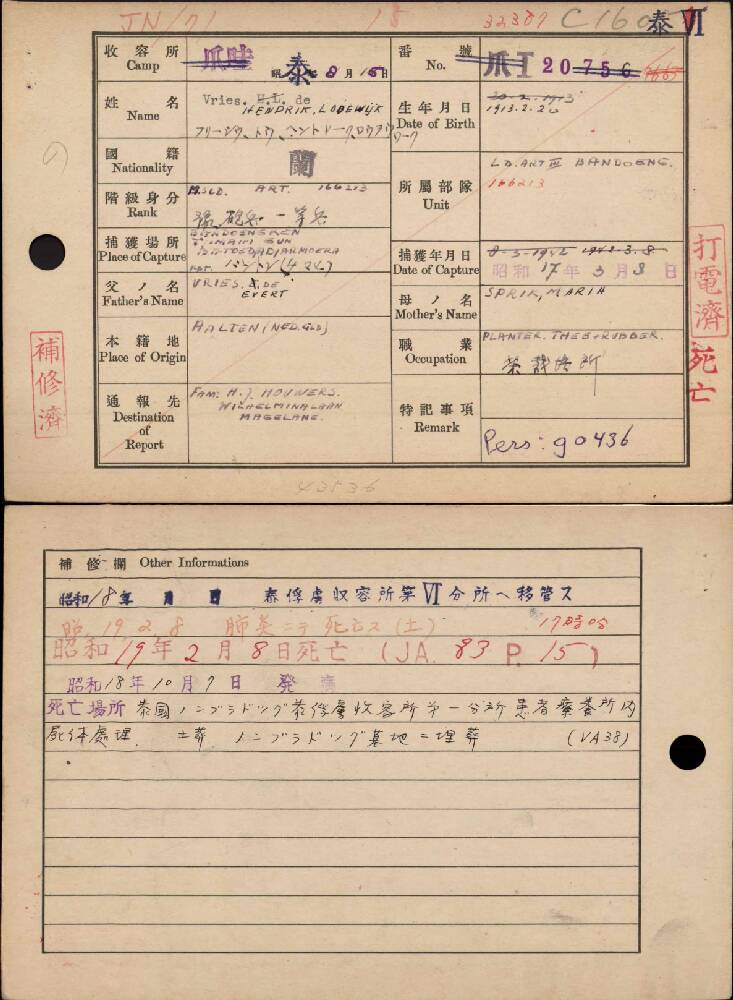 JN/71 18 32387 C160 泰 VI
收容所 Camp 爪哇 泰 昭 年 8月15日
番號 No. 爪I 20756
姓名 Name Vries. H.L. de
HENDRIK, LODEWIJK
生年月日 Date of Birth 20-2-1913
1913.2.20
國籍 Nationality 蘭
階級身分 Rank M.SLD. ART. 166213
砲兵 一等兵
所屬部隊 Unit LD. ART III BANDOENG.
166213
捕獲場所 Place of Capture
捕獲年月日 Date of Capture 8-3-1942 1942-3.8
昭和17年3月8日
父ノ名 Father's Name VRIES. DE
EVERT
母ノ名 Mother's Name SPRIK, MARIA
本籍地 Place of Origin AALTEN (NED. GLD)
職業 Occupation PLANTER. THEE + RUBBER.
通報先 Destination of Report FAM. H.J. HOUWERS.
WILHELMINALAAN
MAGELANG.
特記事項 Remark Pers: 90436
補修濟
打電濟
死亡
43536
補修欄 Other Informations
昭和18年 月 日 泰俘虜収容所第VI分所へ移管ス
昭.19.2.8 肺炎ニテ死亡ス(土) 17時
昭和19年2月8日死亡 (JA. 83 P. 15)
昭和18年10月7日 発
死亡場所 泰國ノンプラドック泰俘虜收容所第一分所患者療養所内
死体處理. 土葬 ノンプラドック墓地ニ埋葬 (VA38)